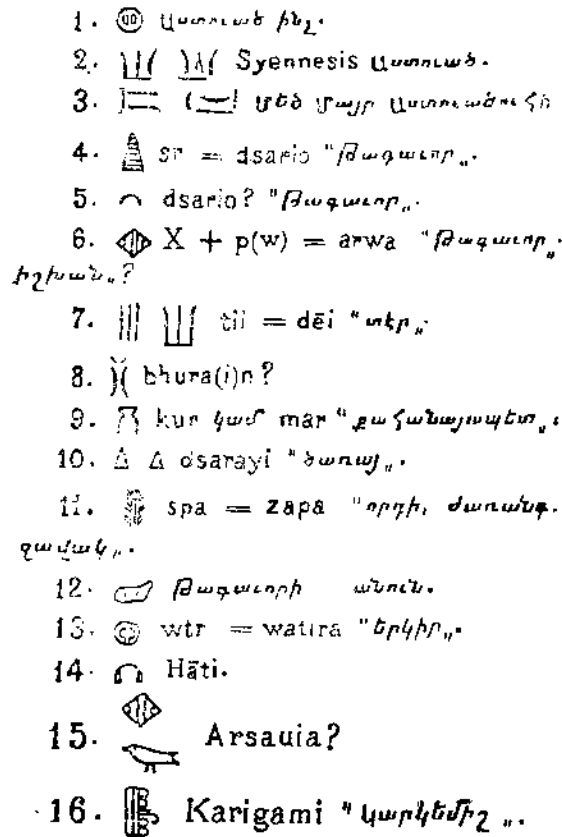 1. Աստուած ինչ.
2. Syennesis Աստուած.
3. Մեծ Մայր Աստուածուհի
4. sr = dsario "Թագաւոր„.
5. dsario? "Թագաւոր„.
6. X + p(w) = arwa "Թագաւոր„.
իշխան„?
7. tii = dēi "տէր„.
8. bhura(i)n?
9. kur կամ mar "քահանայապետ„.
10. dsarayi "ծառայ„.
11. spa = zapa "որդի, ժառանգ.
զաւակ„.
12. Թագաւորի անուն.
13. wtr = watira "երկիր„.
14. Hāti.
15. Arsauia?
16. Karigami "Կարկեմիշ„.